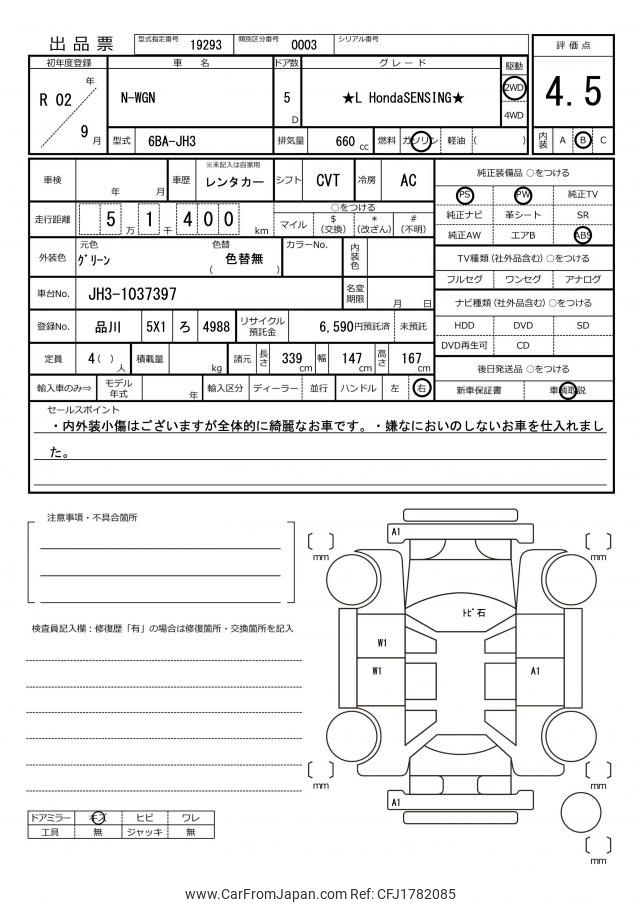 出品票 型式指定番号 19293 類別区分番号 0003 シリアル番号
初年度登録 車 名 ドア数 グレード 駆動 評価点
R 02 年 9 月 N-WGN 5 D ★L HondaSENSING★ 2WD 4WD 4.5
型式 6BA-JH3 排気量 660 cc 燃料 ガソリン 軽油 ( ) 内装 A B C
車検 年 月 車歴 ※未記入は自家用 レンタカー シフト CVT 冷房 AC
走行距離 5 万 1 千 4 0 0 km ○をつける
マイル $ (交換) * (改ざん) # (不明)
外装色 元色 グリーン 色替 ( 色替無 ) カラーNo. 内装色
車台No. JH3-1037397 名変期限 月 日
登録No. 品川 5X1 ろ 4988 リサイクル預託金 6,590円預託済 未預託
定員 4( ) 人 積載量 kg 諸元 長さ 339 cm 幅 147 cm 高さ 167 cm
輸入車のみ⇒ モデル年式 年 輸入区分 ディーラー 並行 ハンドル 左 右
純正装備品 ○をつける
PS PW 純正TV
純正ナビ 革シート SR
純正AW エアB ABS
TV種類 (社外品含む) ○をつける
フルセグ ワンセグ アナログ
ナビ種類 (社外品含む) ○をつける
HDD DVD SD
DVD再生可 CD
後日発送品 ○をつける
新車保証書 車輌取説
セールスポイント
・内外装小傷はございますが全体的に綺麗なお車です。・嫌なにおいのしないお車を仕入れまし
た。
注意事項・不具合箇所
検査員記入欄：修復歴「有」の場合は修復箇所・交換箇所を記入
ドアミラー キズ ヒビ ワレ
工具 無 ジャッキ 無
A1
mm
mm
トビ石
W1
W1
A1
mm
mm
A1
mm
www.CarFromJapan.com Ref: CFJ1782085